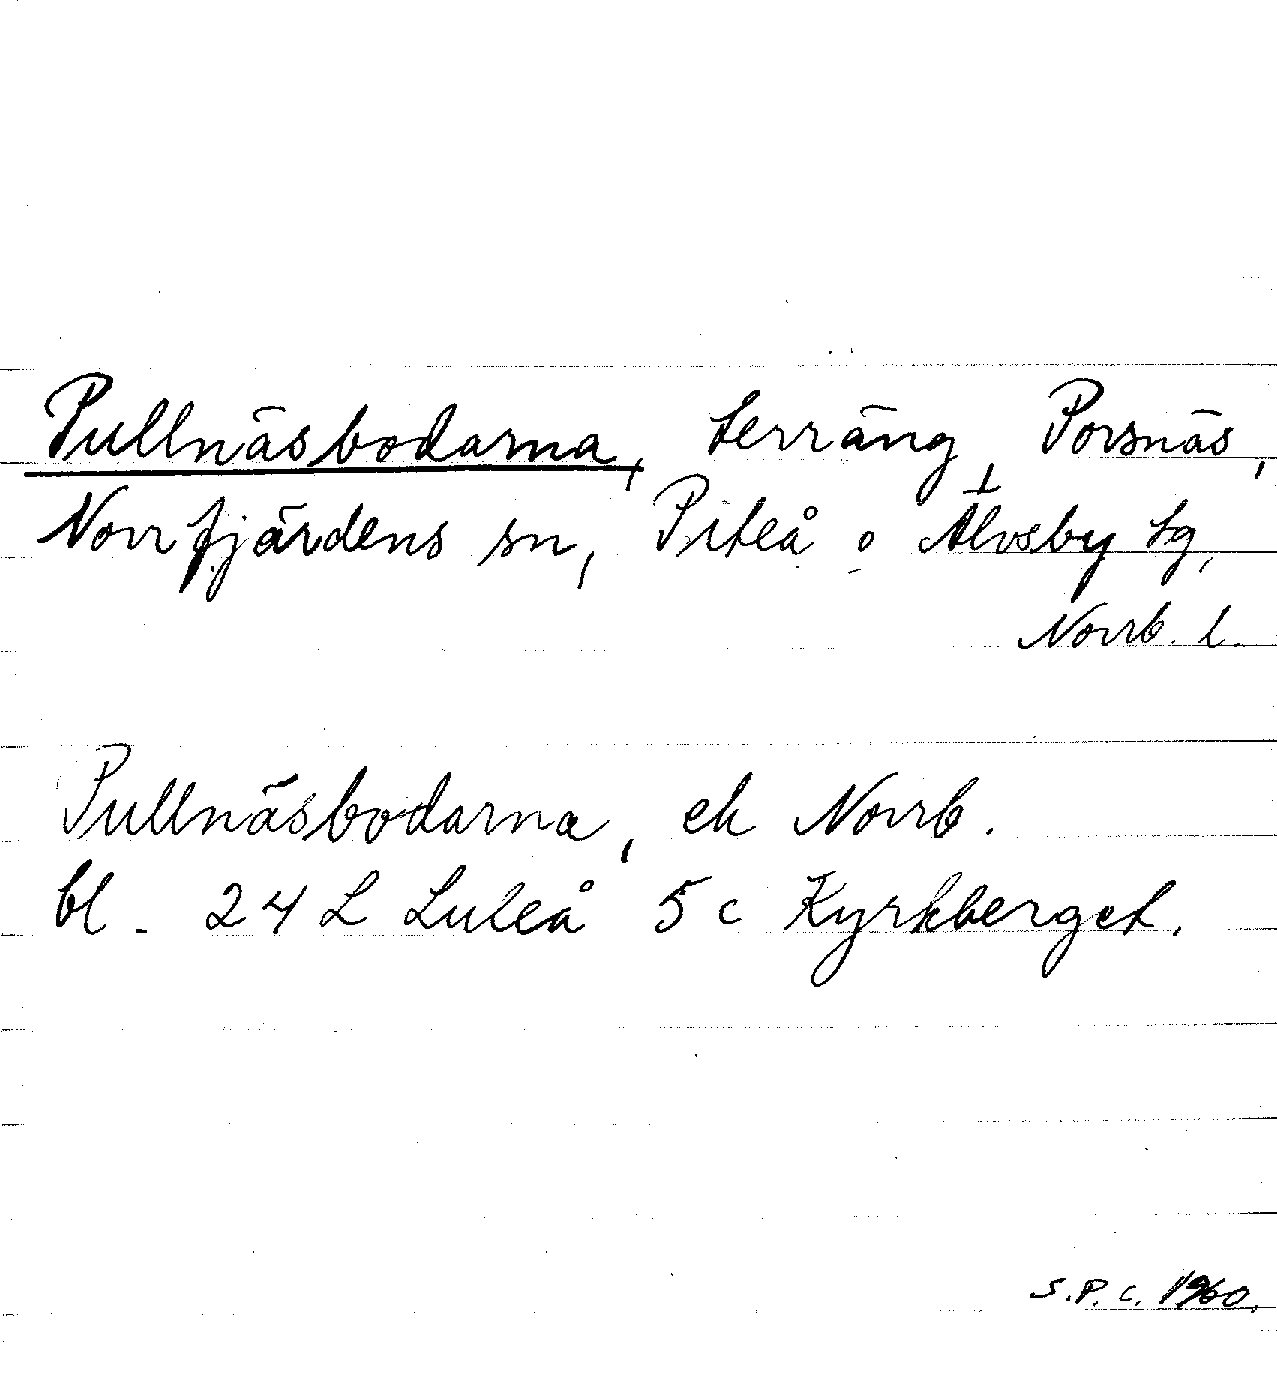 Pullnäsbodarna, terräng, Porsnäs,
Norrfjärdens sn, Piteå o Älvsby tg,
Norrb. l.
Pullnäsbodarna, ek Norrb.
bl. 24 L Luleå 5 c Kyrkberget.
S.P.C. 1960.